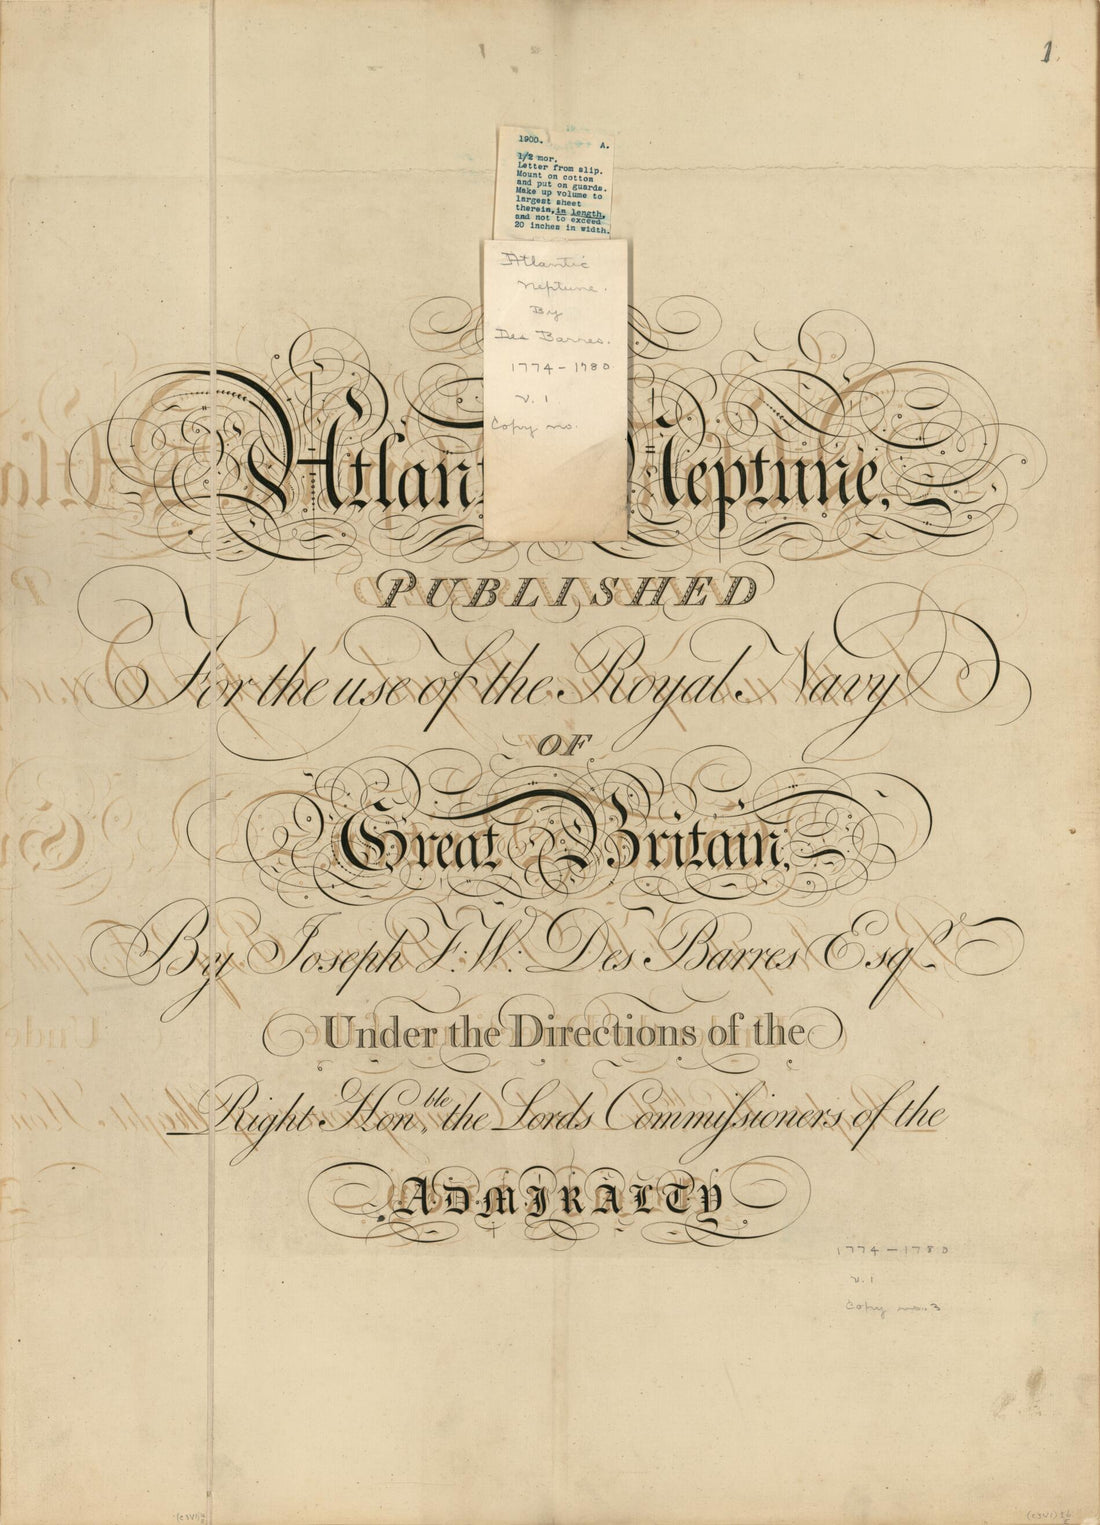 1.
1900. A.
1/2 mor.
Letter from slip.
Mount on cotton
and put on guards.
Make up volume to
largest sheet
therein, in length,
and not to exceed
20 inches in width.
Atlantic
Neptune.
By
Des Barres.
1774-1780
v. 1
Copy no.
Atlan Neptune,
PUBLISHED
For the use of the Royal Navy
OF
Great Britain,
By Joseph F: W: Des Barres Esqr.
Under the Directions of the
Right Honble. the Lords Commiſsioners of the
ADMIRALTY
1774-1780
v. 1
Copy no. 3